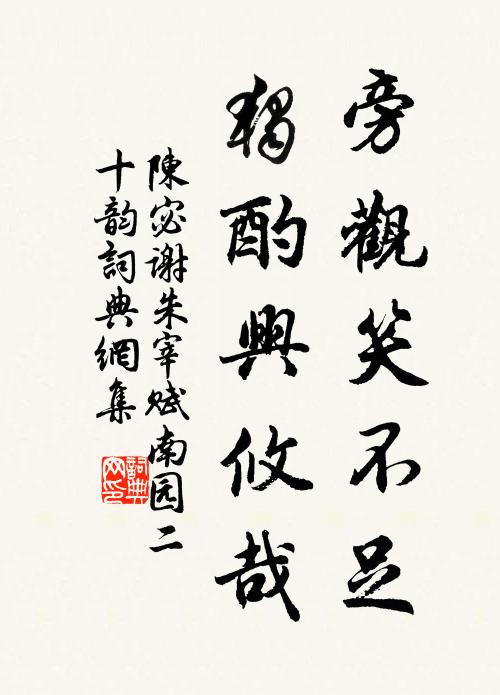 旁觀笑不足
獨酌興攸哉
陳宓谢朱宰赋南园二
十韵詞典網集
詞典網印